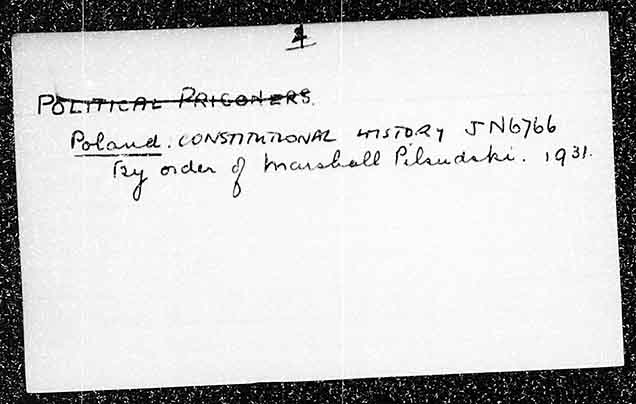 4
POLITICAL PRISONERS.
Poland. CONSTITUTIONAL HISTORY JN6766
By order of Marshall Pilsudski. 1931.